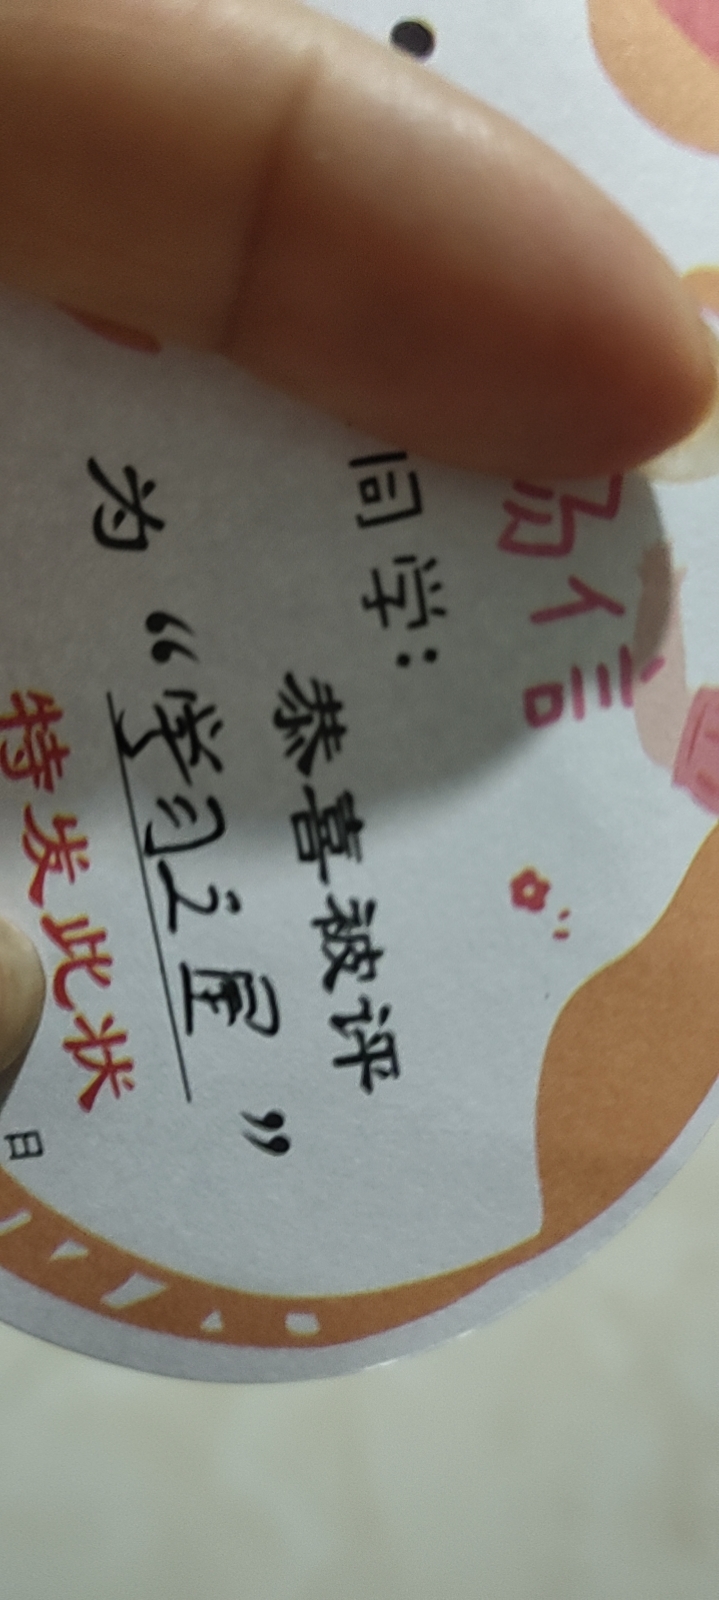 信
同学：
恭喜被评
为“学习之星”
特发此状
日